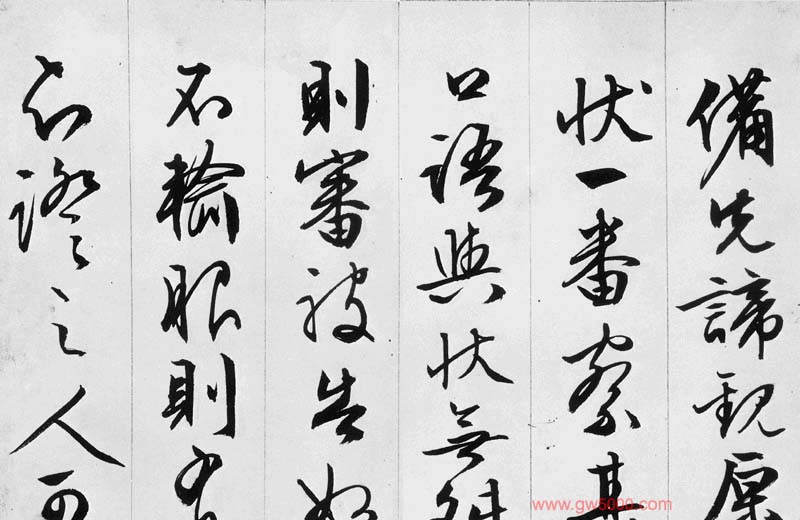 備先諦觀原
状一番察其
口語與状無
則審被告如
不輸服則有
證之人可
www.gw5000.com